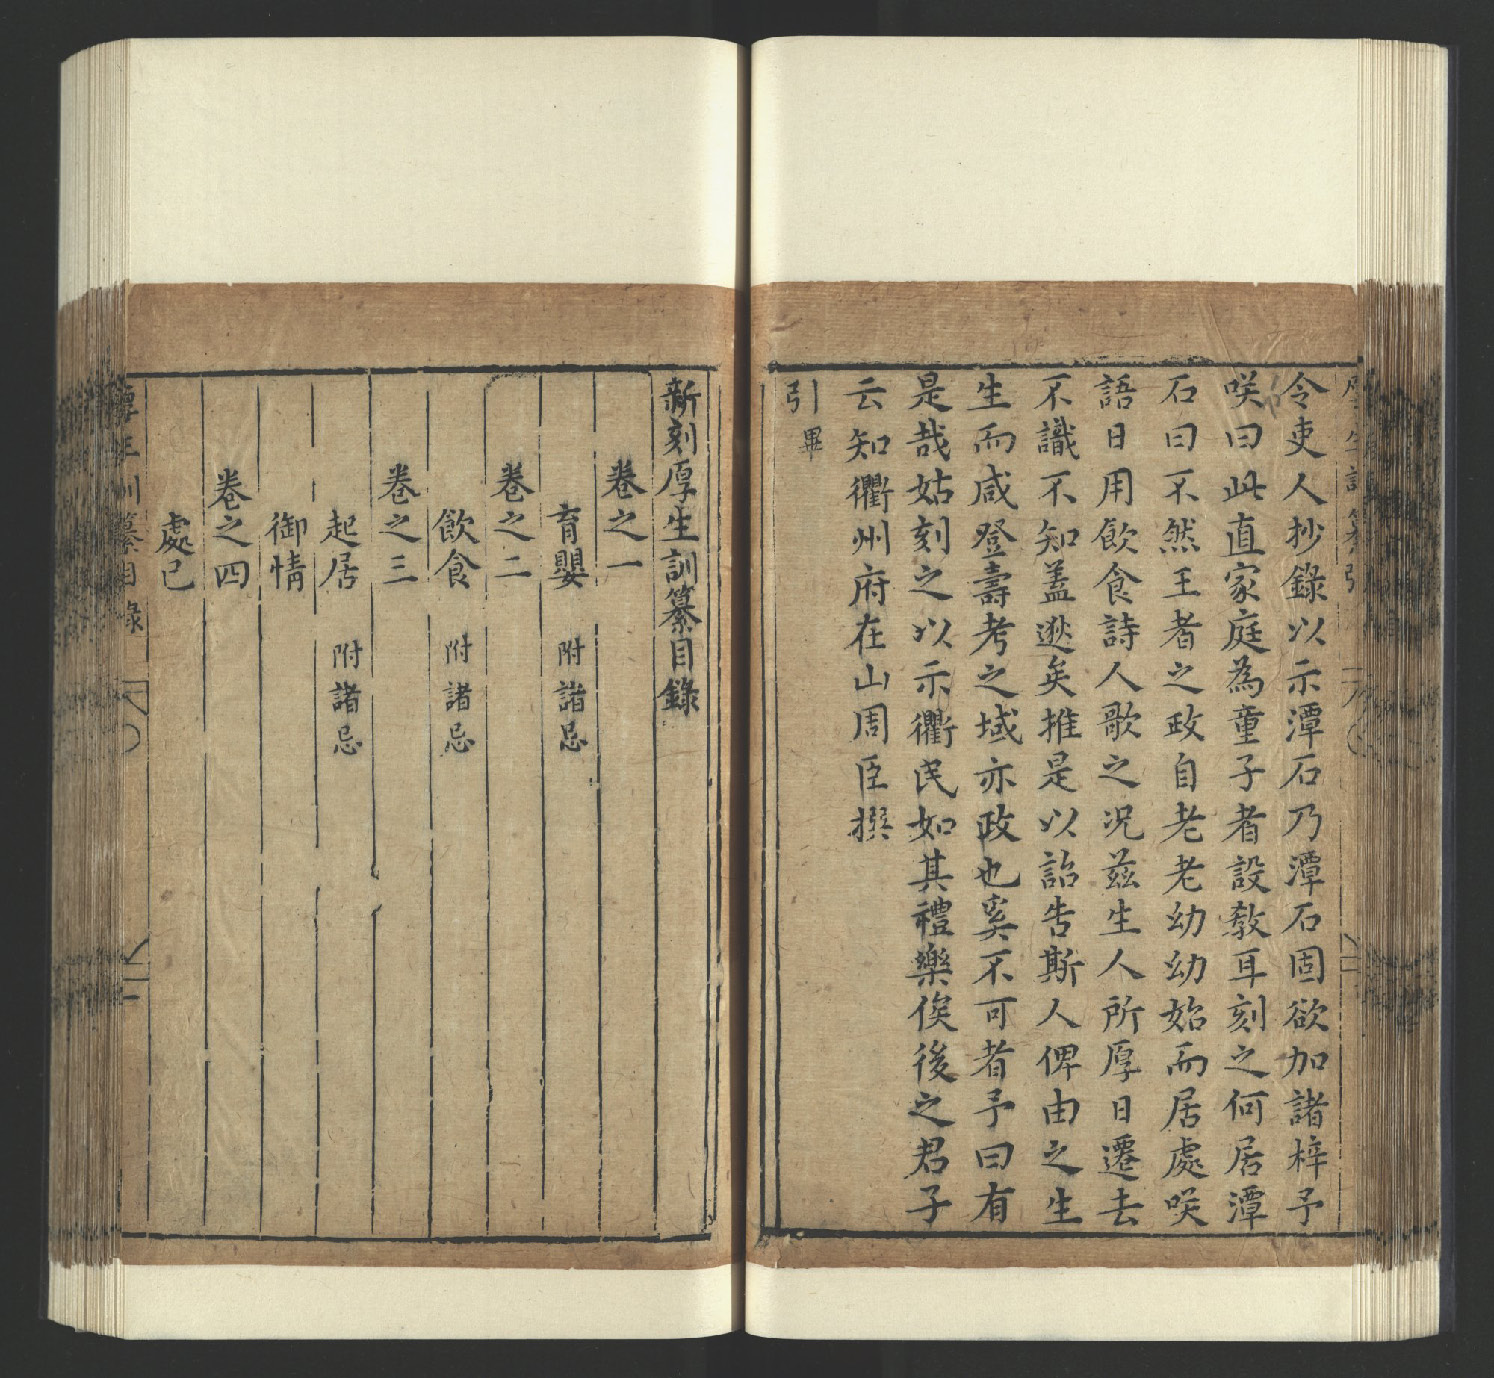 令吏人抄錄以示潭石乃潭石固欲加諸梓予
咲曰此直家庭為童子者設教耳刻之何居潭
石曰不然王者之政自老老幼幼始而居處咲
語日用飲食詩人歌之况茲生人所厚日遷去
不識不知蓋逖矣推是以詒告斯人俾由之生
生而咸登壽考之域亦政也奚不可者予曰有
是哉姑刻之以示衢民如其禮樂俟後之君子
云知衢州府在山周臣撰
引畢
新刻厚生訓纂目錄
卷之一
育嬰 附諸忌
卷之二
飲食 附諸忌
卷之三
起居 附諸忌
御情
卷之四
處己